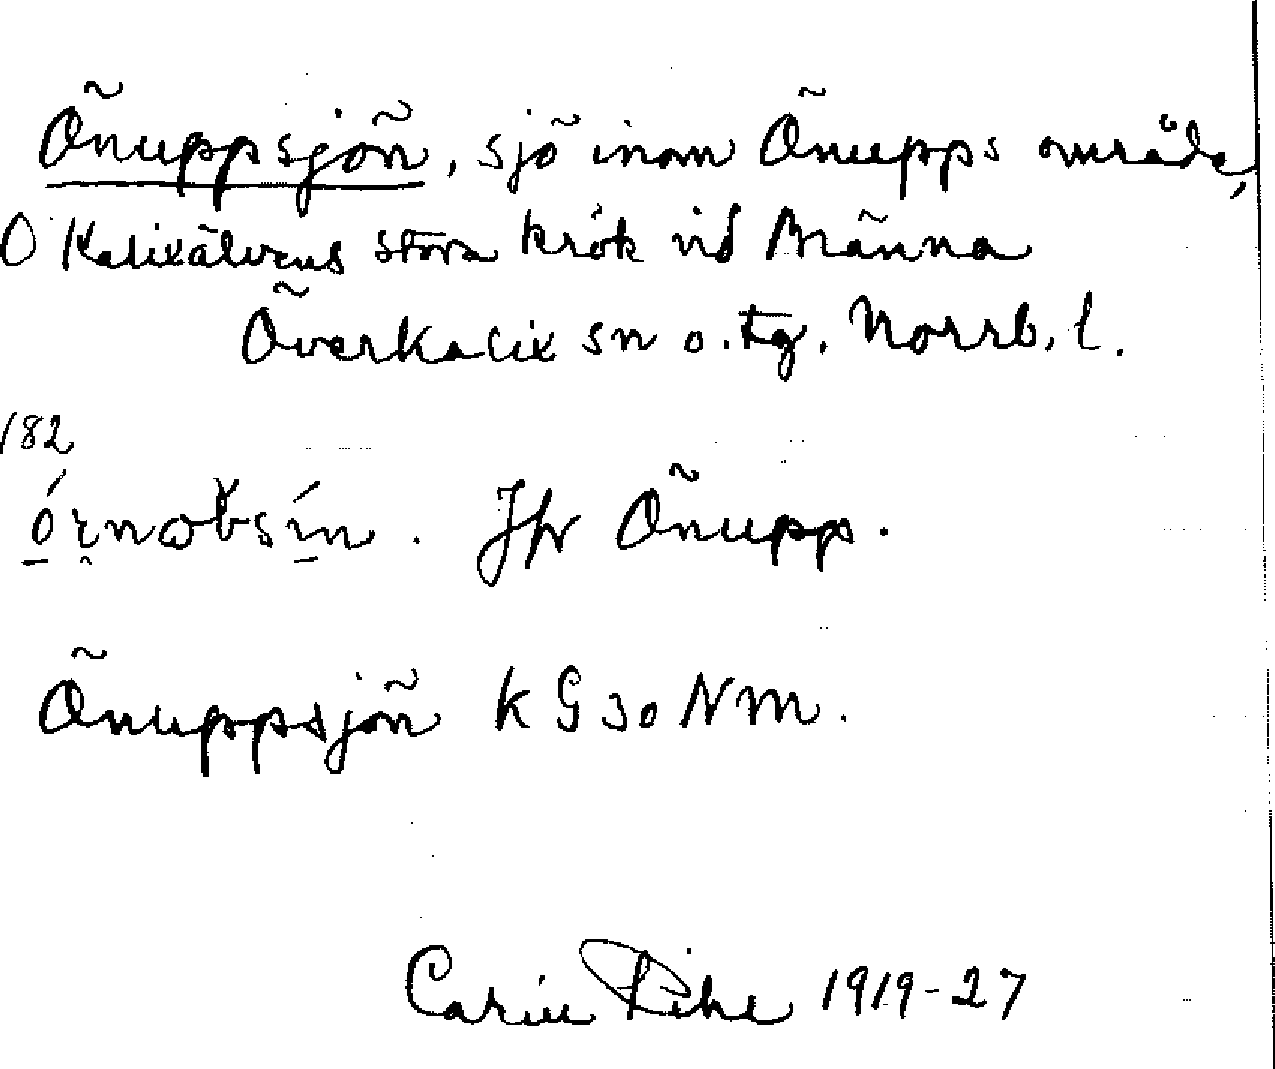 Önuppsjön, sjö inom Önupps område,
O Kalixälvens stora krök vid Männa
Överkalix sn o. tg. Norrb. l.
182
Jfr Önupp.
Önuppsjön K G 30 N M.
Carin Pihl 1919-27